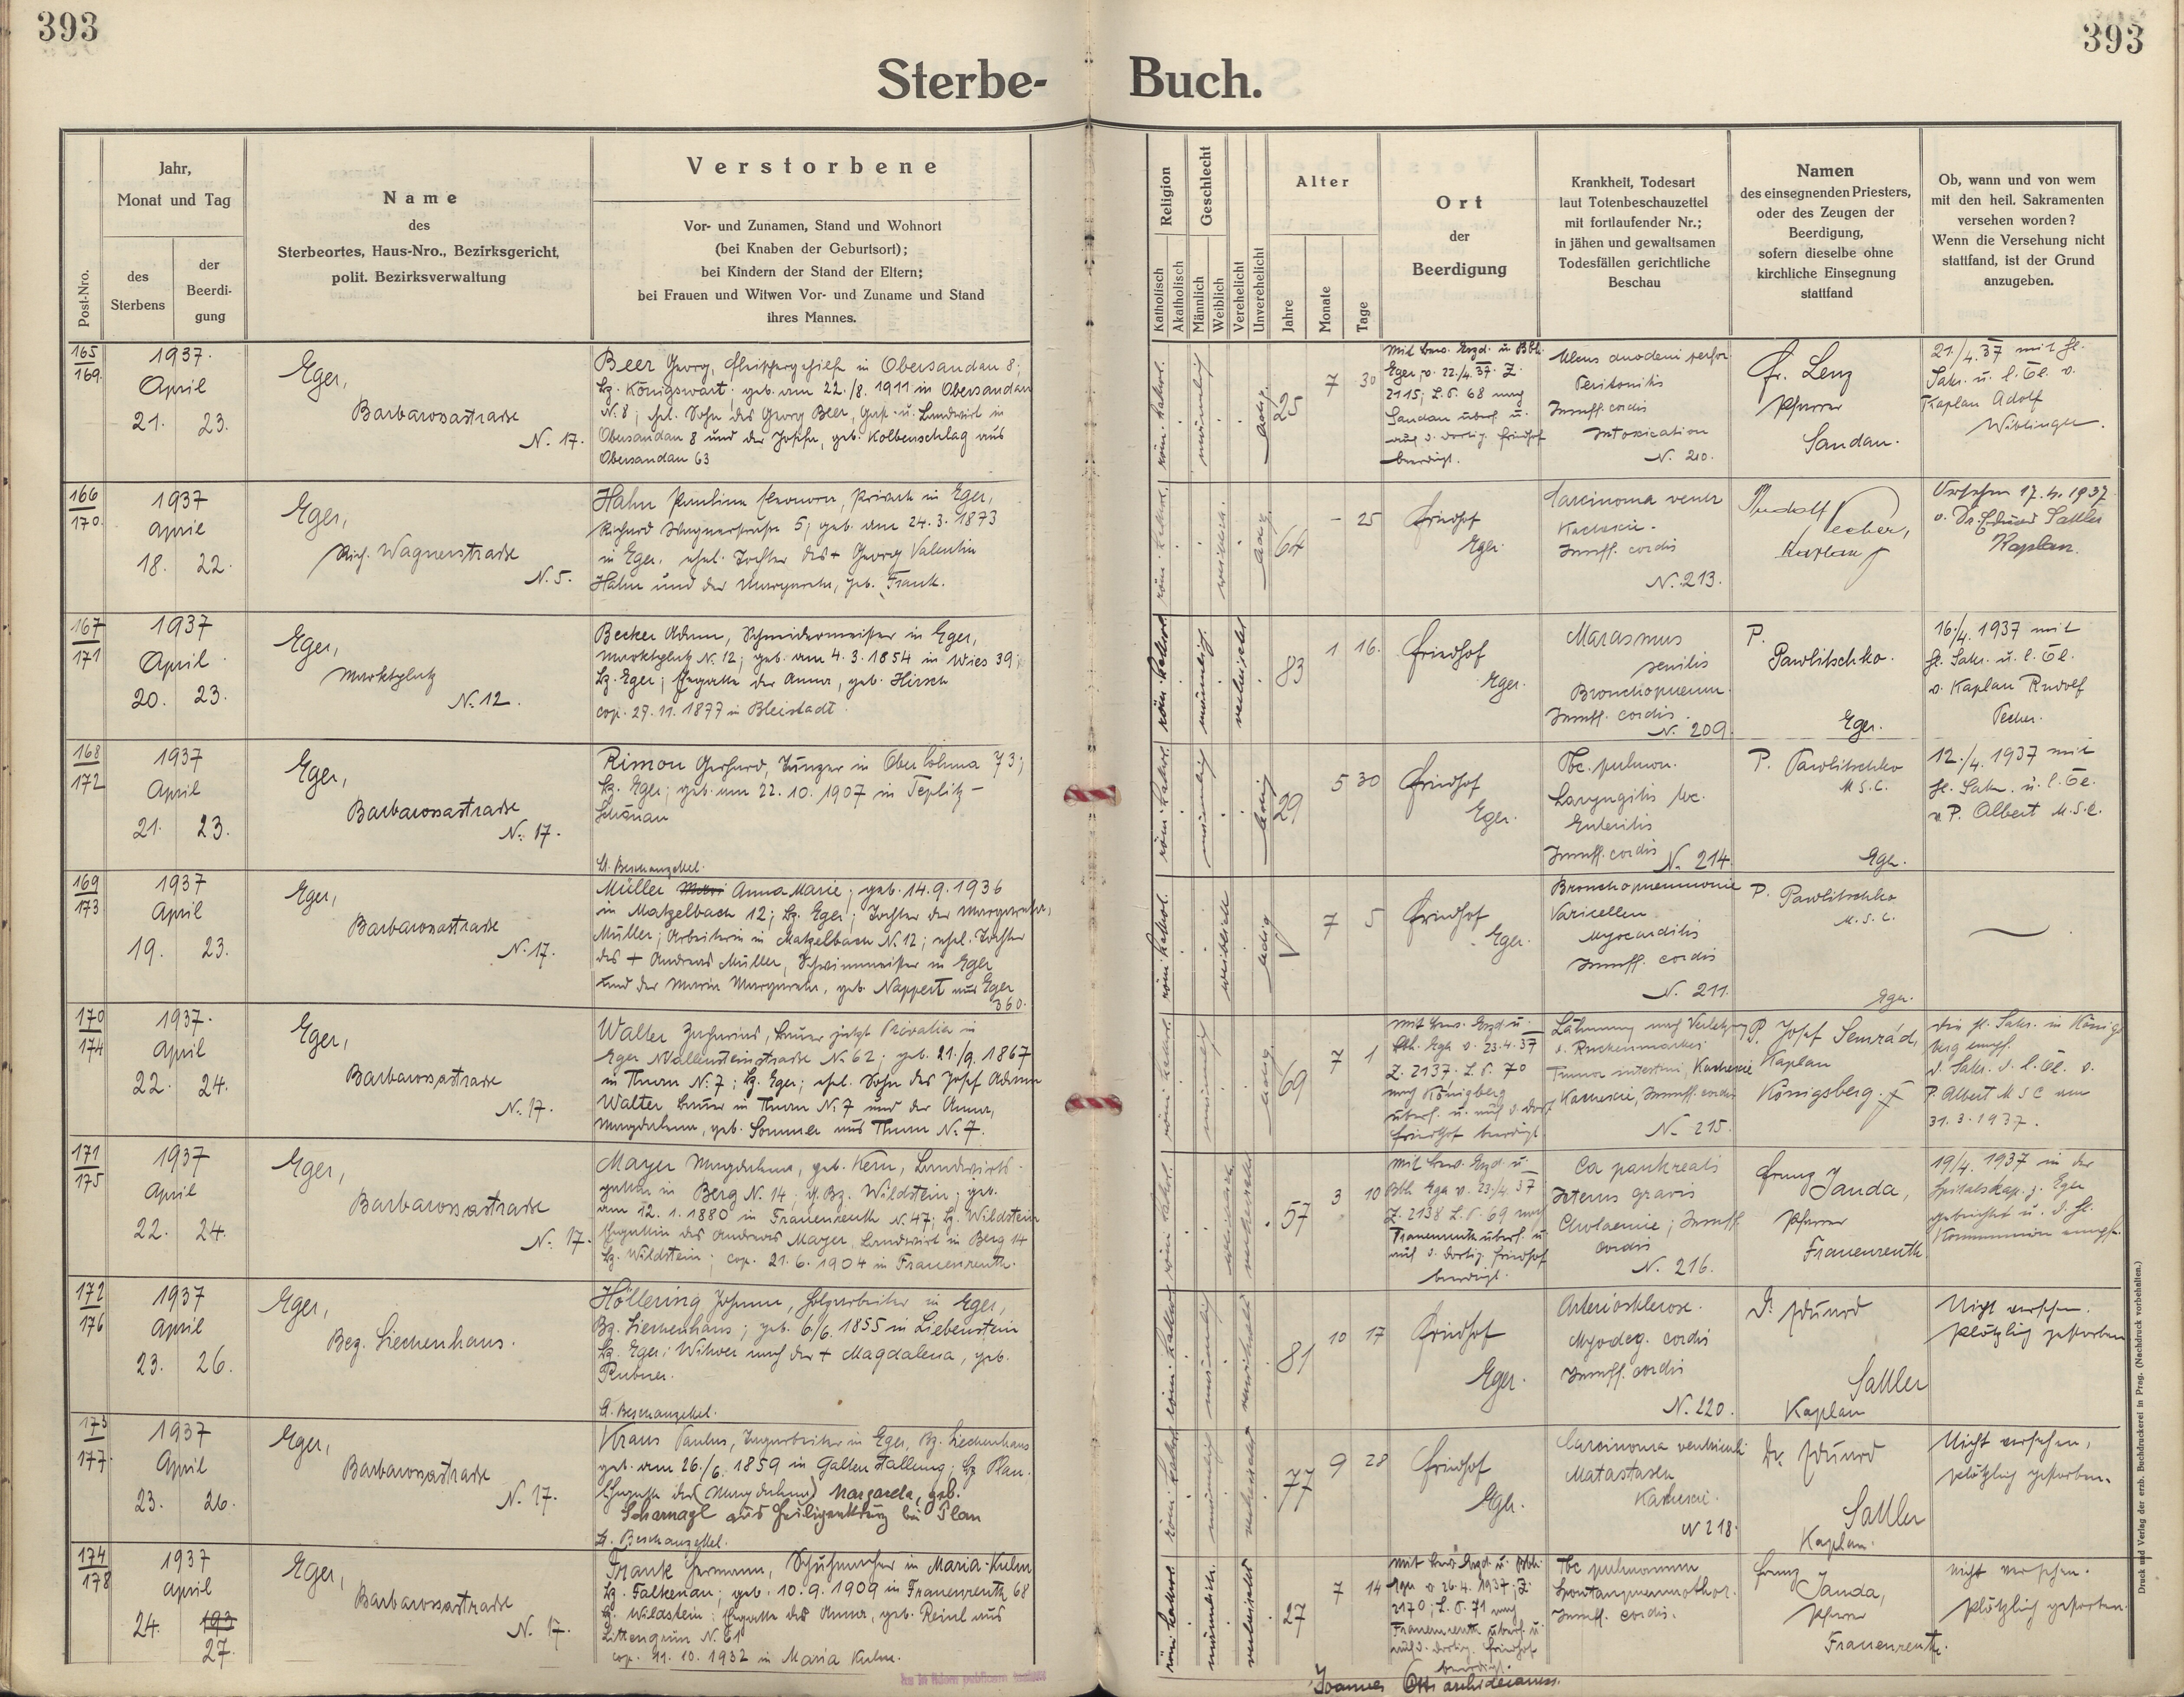 393
393
Sterbe- Buch.
Post-Nro.
Jahr,
Monat und Tag
des
Sterbens
der
Beerdi-
gung
Name
des
Sterbeortes, Haus-Nro., Bezirksgericht,
polit. Bezirksverwaltung
Verstorbene
Vor- und Zunamen, Stand und Wohnort
(bei Knaben der Geburtsort);
bei Kindern der Stand der Eltern;
bei Frauen und Witwen Vor- und Zuname und Stand
ihres Mannes.
Religion
Katholisch
Akatholisch
Geschlecht
Männlich
Weiblich
Verehelicht
Unverehelicht
Alter
Jahre
Monate
Tage
Ort
der
Beerdigung
Krankheit, Todesart
laut Totenbeschauzettel
mit fortlaufender Nr.;
in jähen und gewaltsamen
Todesfällen gerichtliche
Beschau
Namen
des einsegnenden Priesters,
oder des Zeugen der
Beerdigung,
sofern dieselbe ohne
kirchliche Einsegnung
stattfand
Ob, wann und von wem
mit den heil. Sakramenten
versehen worden?
Wenn die Versehung nicht
stattfand, ist der Grund
anzugeben.
165
169
1937.
April
21. 23.
Eger,
Barbarossastrasse
N. 17.
Beer Georg, Fleischergehilfe in Obersandau 8;
Bz. Königswart; geb. am 22./8. 1911 in Obersandau
N. 8; ehel. Sohn des Georg Beer, Gast- u. Landwirt in
Obersandau 8 und der Josefa, geb. Kolbenschlag aus
Obersandau 63
röm. kathol.
männlich
ledig
25
7
30
Mit bew. Erzd. u. Bbh.
Eger v. 22./4. 37. Z.
2115; L.P. 68 nach
Sandau überf. u.
auf d. dortig. Friedhof
beerdigt.
Ulcus duodeni perfor
Peritonitis
Insuff. cordis
Intoxication
N. 210.
Fr. Lenz
Pfarrer
Sandau.
21./4. 37 mit hl.
Sakr. u. l. Öl. v.
Kaplan Adolf
Wiblinger.
166
170
1937
April
18. 22.
Eger,
Rich. Wagnerstrasse
N. 5.
Hahn Paulina Eleonora, Private in Eger,
Richard Wagnerstraße 5; geb. am 24. 3. 1873
in Eger, ehel. Tochter des + Georg Valentin
Hahn und der Margareta, geb. Frank.
röm. kathol.
weiblich
ledig
64
- 25
Friedhof
Eger.
Carcinoma ventr
Kachexie.
Insuff. cordis
N. 213.
Rudolf
Pecher,
Kaplan
Versehen 17. 4. 1937
v. Dr. Eduard Sattler
Kaplan.
167
171
1937
April
20. 23.
Eger,
Marktplatz
N. 12.
Becker Adam, Schneidermeister in Eger,
Marktplatz N. 12; geb. am 4. 3. 1854 in Wies 39;
Bz. Eger; Ehegatte der Anna, geb. Hirsch
cop. 27. 11. 1877 in Bleistadt.
röm. kathol.
männlich
verheiratet
83
1
16.
Friedhof
Eger.
Marasmus
senilis
Bronchopneum.
Insuff. cordis.
N. 209.
P.
Pawlitschko.
Eger.
16./4. 1937 mit
hl. Sakr. u. l. Öl.
v. Kaplan Rudolf
Pecher.
168
172
1937
April
21. 23.
Eger,
Barbarossastrasse
N. 17.
Rimon Gerhard, in Ober Lohma 73;
Bz. Eger; geb. am 22. 10. 1907 in Teplitz-
Schönau
lt. Beschauzettel.
röm. kathol.
männlich
ledig
29
5 30
Friedhof
Eger.
Tbc. pulmon.
Laryngitis tbc.
Enteritis
Insuff. cordis
N. 214.
P. Pawlitschko
M.S.C.
Eger.
12./4. 1937 mit
hl. Sakr. u. l. Öl.
v. P. Albert M.S.C.
169
173
1937
April
19. 23.
Eger,
Barbarossastrasse
N. 17.
Müller Anna Marie; geb. 14. 9. 1936
in Matzelbach 12; Bz. Eger; Tochter der Margareta
Müller; Arbeiterin in Matzelbach N. 12; ehel. Tochter
des + Andreas Müller, Schwimmeister in Eger
und der Maria Margareta, geb. Nappert aus Eger
360.
röm. kathol.
weiblich
ledig
7 5
Friedhof
Eger.
Bronchopneumonie
Varicellen
Myocarditis
Insuff. cordis
N. 211.
P. Pawlitschko
M.S.C.
Eger.
170
174
1937.
April
22. 24.
Eger,
Barbarossastrasse
N. 17.
Walter Zacharias, Bauer jetzt Privatier in
Eger Wallensteinstrasse N. 62; geb. 21./9. 1867
in Thurn N. 7; Bz. Eger; ehel. Sohn des Josef Adam
Walter, Bauer in Thurn N. 7 und der Anna,
Magdalena, geb. Sommer aus Thurn N. 7.
röm. kathol.
männlich
ledig
69
7
1
Mit bew. Erzd u.
Bbh. Eger v. 23. 4. 37
Z. 2137. L.P. 70
nach Königsberg
überf. u. auf d. dort.
Friedhof beerdigt
Lähmung nach Verletzg
d. Rückenmarkes
Tumor intestini, Kachexie
Kachexie, Insuff. cordis
N. 215.
P. Josef Semrád,
Kaplan
Königsberg.
die hl. Sakr. in Königs
berg empf.
d. Sakr. d. l. Öl. v.
P. Albert M S C am
31. 3. 1937.
171
175
1937
April
22. 24.
Eger,
Barbarossastrasse
N. 17.
Mayer Magdalena, geb. Kern, Landwirts-
gattin in Berg N. 14; g. Bz. Wildstein; geb.
am 12. 1. 1880 in Frauenreuth N. 47; Bz. Wildstein
Ehegattin des Andreas Mayer, Landwirt in Berg 14
Bz. Wildstein; cop. 21. 6. 1904 in Frauenreuth.
röm. kathol.
weiblich
verheiratet
57
3
10
Mit bew. Erzd. u.
Bbh. Eger v. 23./4. 37
Z. 2138 L.P. 69 nach
Frauenreuth überf. u.
auf d. dortig. Friedhof
beerdigt.
Ca pankreatis
Icterus gravis
Cholaemie; Insuff.
cordis
N. 216.
Franz Janda,
Pfarrer
Frauenreuth
19/4. 1937 in der
Spitalskap. z. Eger
gebeichtet u. d. hl.
Kommunion empf.
172
176
1937
April
23. 26.
Eger,
Bez. Siechenhaus.
Höllering Johann, Holzarbeiter in Eger,
Bz. Siechenhaus; geb. 6./6. 1855 in Liebenstein
Bz. Eger; Witwer nach der + Magdalena, geb.
Rubner.
lt. Beschauzettel.
röm. kathol.
männlich
verwitwet
81
10 17
Friedhof
Eger.
Arteriosklerose.
Myodeg. cordis
Insuff. cordis
N. 220.
Dr. Eduard
Sattler
Kaplan
Nicht versehen.
plötzlich gestorben
173
177
1937
April
23. 26.
Eger,
Barbarossastrasse
N. 17.
Kraus Paulus, in Eger, Bz. Siechenhaus
geb. am 26./6. 1859 in Galtenstallung; Bz Plan.
Ehegatte der (Magdalena) Margareta, geb.
Scharnagl aus Heiligenkreuz bei Plan
lt. Beschauzettel.
röm. kathol.
männlich
verheiratet
77
9 28
Friedhof
Eger.
Carcinoma ventriculi
Matastasen
Kachexie.
N 218.
Dr. Eduard
Sattler
Kaplan.
Nicht versehen,
plötzlich gestorben.
174
178
1937
April
24. 193
27.
Eger,
Barbarossastrasse
N. 17.
Frank Hermann, Schuhmacher in Maria-Kulm
Bz. Falkenau; geb. 10. 9. 1909 in Frauenreuth 68
Bz. Wildstein; Ehegatte der Anna, geb. Reinl aus
Littengrün N. 61
cop. 11. 10. 1932 in Maria Kulm.
röm. kathol.
männlich.
verheiratet
27
7
14
Mit bew. Erzd. u. Bbh.
Eger v. 26. 4. 1937; Z.
2170; L.P. 71 nach
Frauenreuth überf. u.
auf d. dortig. Friedhof
beerdigt.
Tbc pulmonum
Spontanpneumothor.
Insuff. cordis.
Franz Janda,
Pfarrer
Frauenreuth.
nicht versehen.
plötzlich gestorben.
Joannes Ott archidecanus.
Druck und Verlag der ersb. Buchdruckerei in Prag. (Nachdruck vorbehalten.)